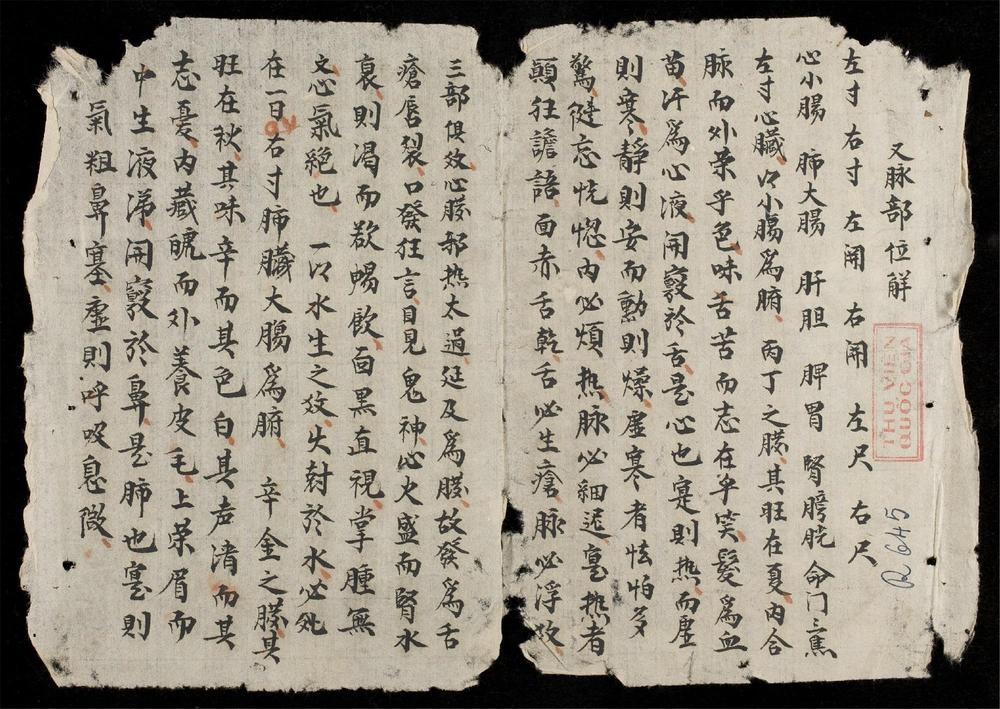 又脉部位解
左寸 右寸 左関 右関 左尺 右尺
心小腸 肺大腸 肝胆 脾胃 腎膀胱 命门三焦
左寸心臟以小腸為腑 丙丁之臓其旺在夏内合
脉而外栄乎色味舌苦而志在乎笑髪為血
苗汗為心液開竅於舌是心也寔則热而虚
則寒静則安而動則燥虚寒者怯怕多
驚健忘恍惚内必煩热脉必細迟寔热者
顛狂譫語面赤舌乾舌必生瘡脉必浮故
三部俱效心臓部热太過延及為臓故發為舌
瘡唇裂口發狂言目見鬼神心火盛而腎水
衰則渴而欲 飲面黒直視掌腫無
文心氣絶也 一以水生之故火尅於水必死
在一日右寸肺臟大腸為腑 辛金之臓其
旺在秋其味辛而其色白其声清而其
志憂内藏魄而外養皮毛上栄眉而
中生液涕開竅於鼻是肺也寔則
氣粗鼻塞虚則呼吸息微
THƯ VIỆN
QUỐC GIA
R 645